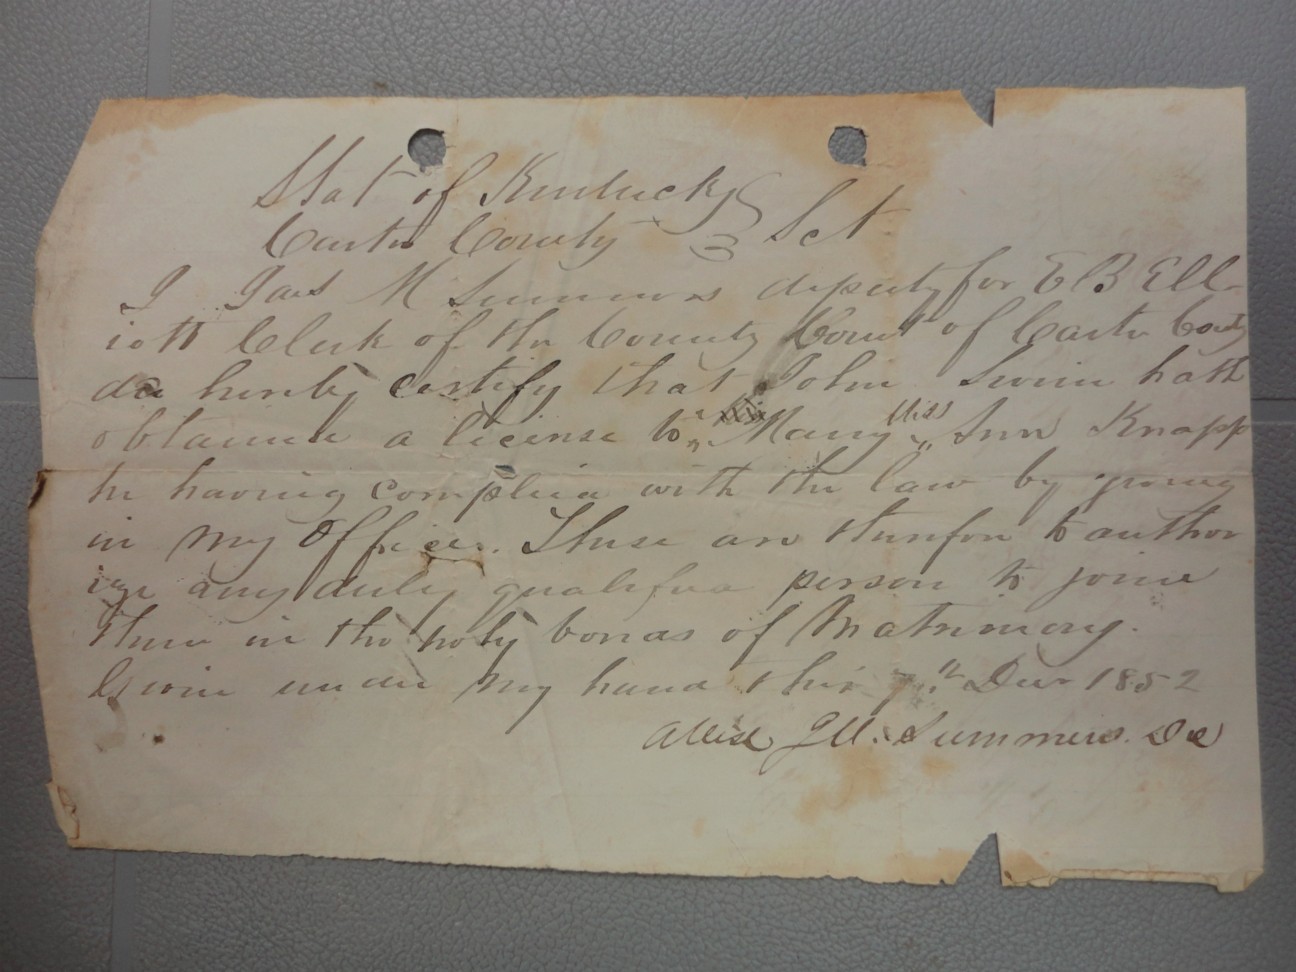 Stat of Kentucky
Carter County } Sct
I Jas M Summers deputy for E B Ell-
iott Clerk of the County Court of Carter County
do hereby certify that John Swim hath
obtained a license to Marry Miss Ann Knapp
he having complied with the law by
in my office. These are therefore to author
ize any duly qualified person to joine
them in the holy bonds of Matrimony.
Given under my hand this 7th Decr 1852
Attest J M. Summers. D C